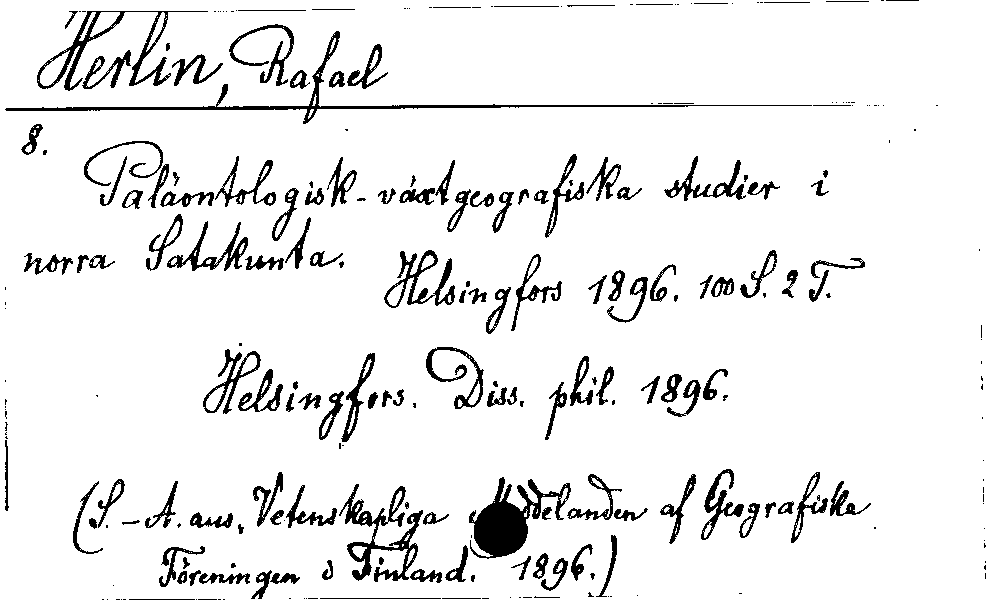 Herlin, Rafael
8.
Paläontologisk-växtgeografiska studier i
norra Satakunta.
Helsingfors 1896. 100 S. 2 T.
Helsingfors. Diss. phil. 1896.
(S.-A. aus. Vetenskapliga af Geografiska
Föreningen i Finland. 1896.)